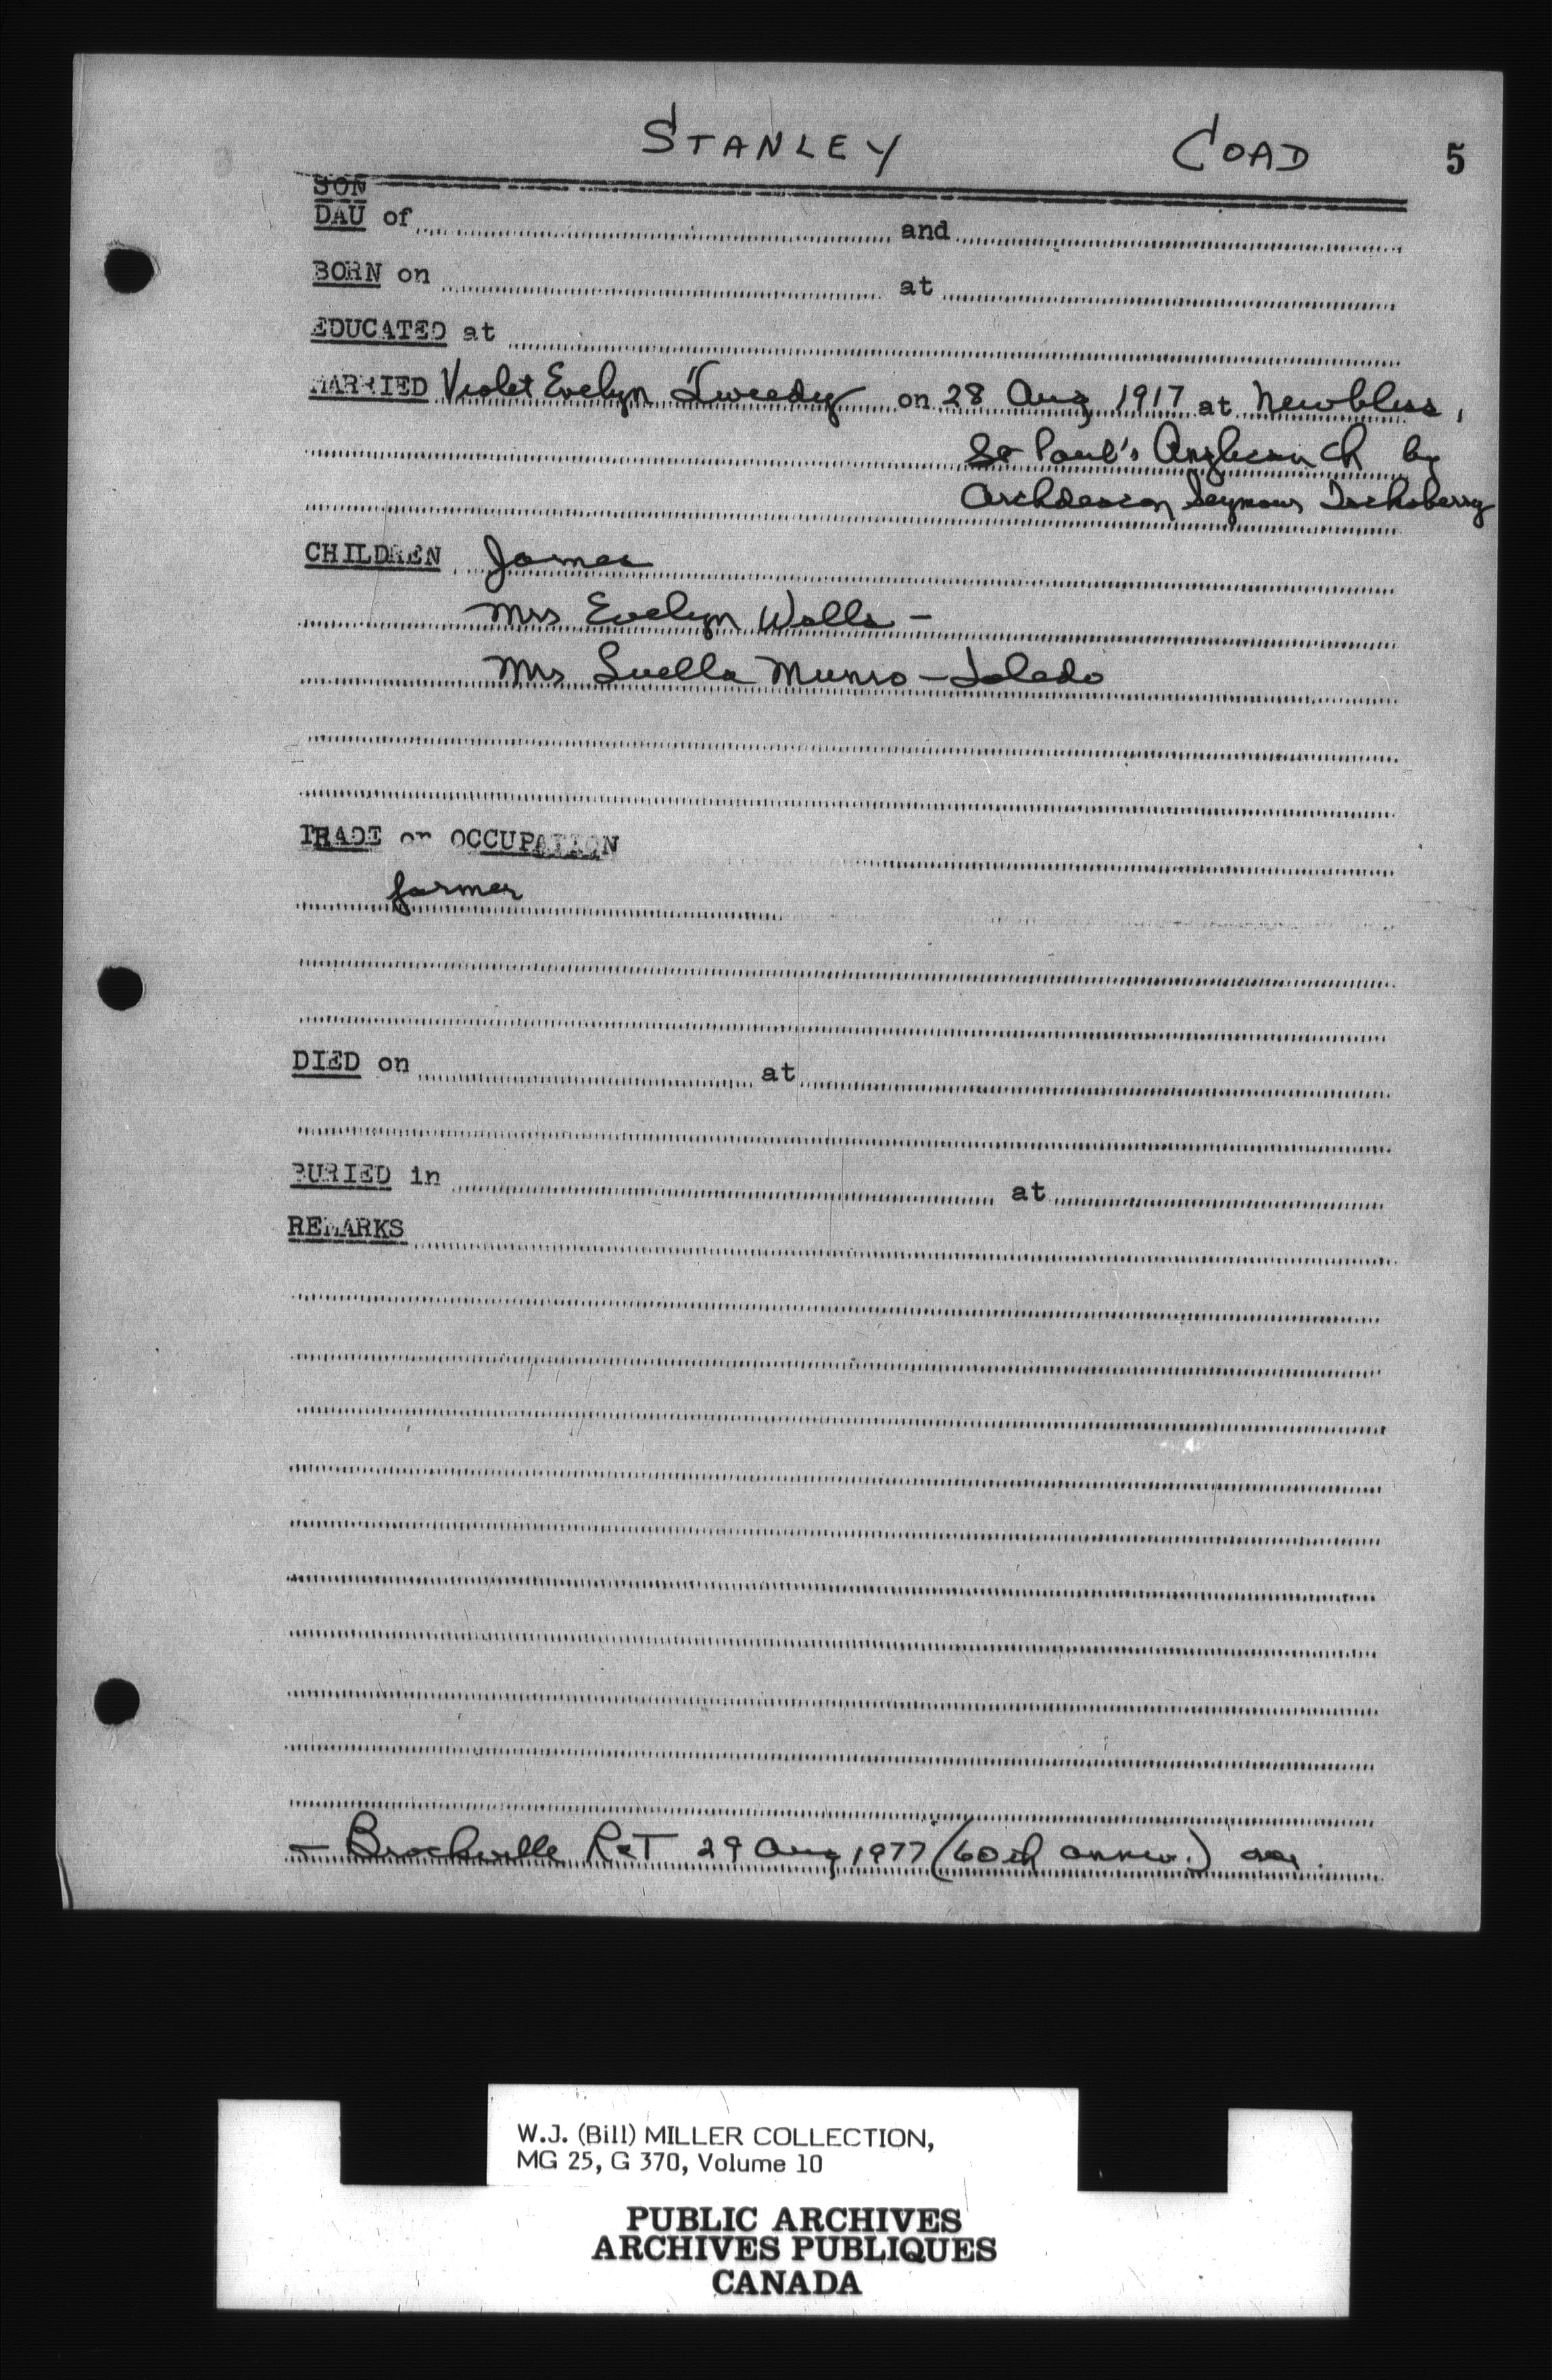 STANLEY COAD 5
SON
DAU of and
BORN on at
EDUCATED at
MARRIED Violet Evelyn Tweedy on 28 Aug 1917 at Newbliss,
St Paul's Anglican Ch by
Archdeacon Seymour
CHILDREN James
Mrs Evelyn Wells -
Mrs Luella Munro - Toledo
TRADE or OCCUPATION
farmer
DIED on at
BURIED in at
REMARKS
- Brockville R&T 29 Aug 1977 (60th anniv.)
W.J. (Bill) MILLER COLLECTION,
MG 25, G 370, Volume 10
PUBLIC ARCHIVES
ARCHIVES PUBLIQUES
CANADA